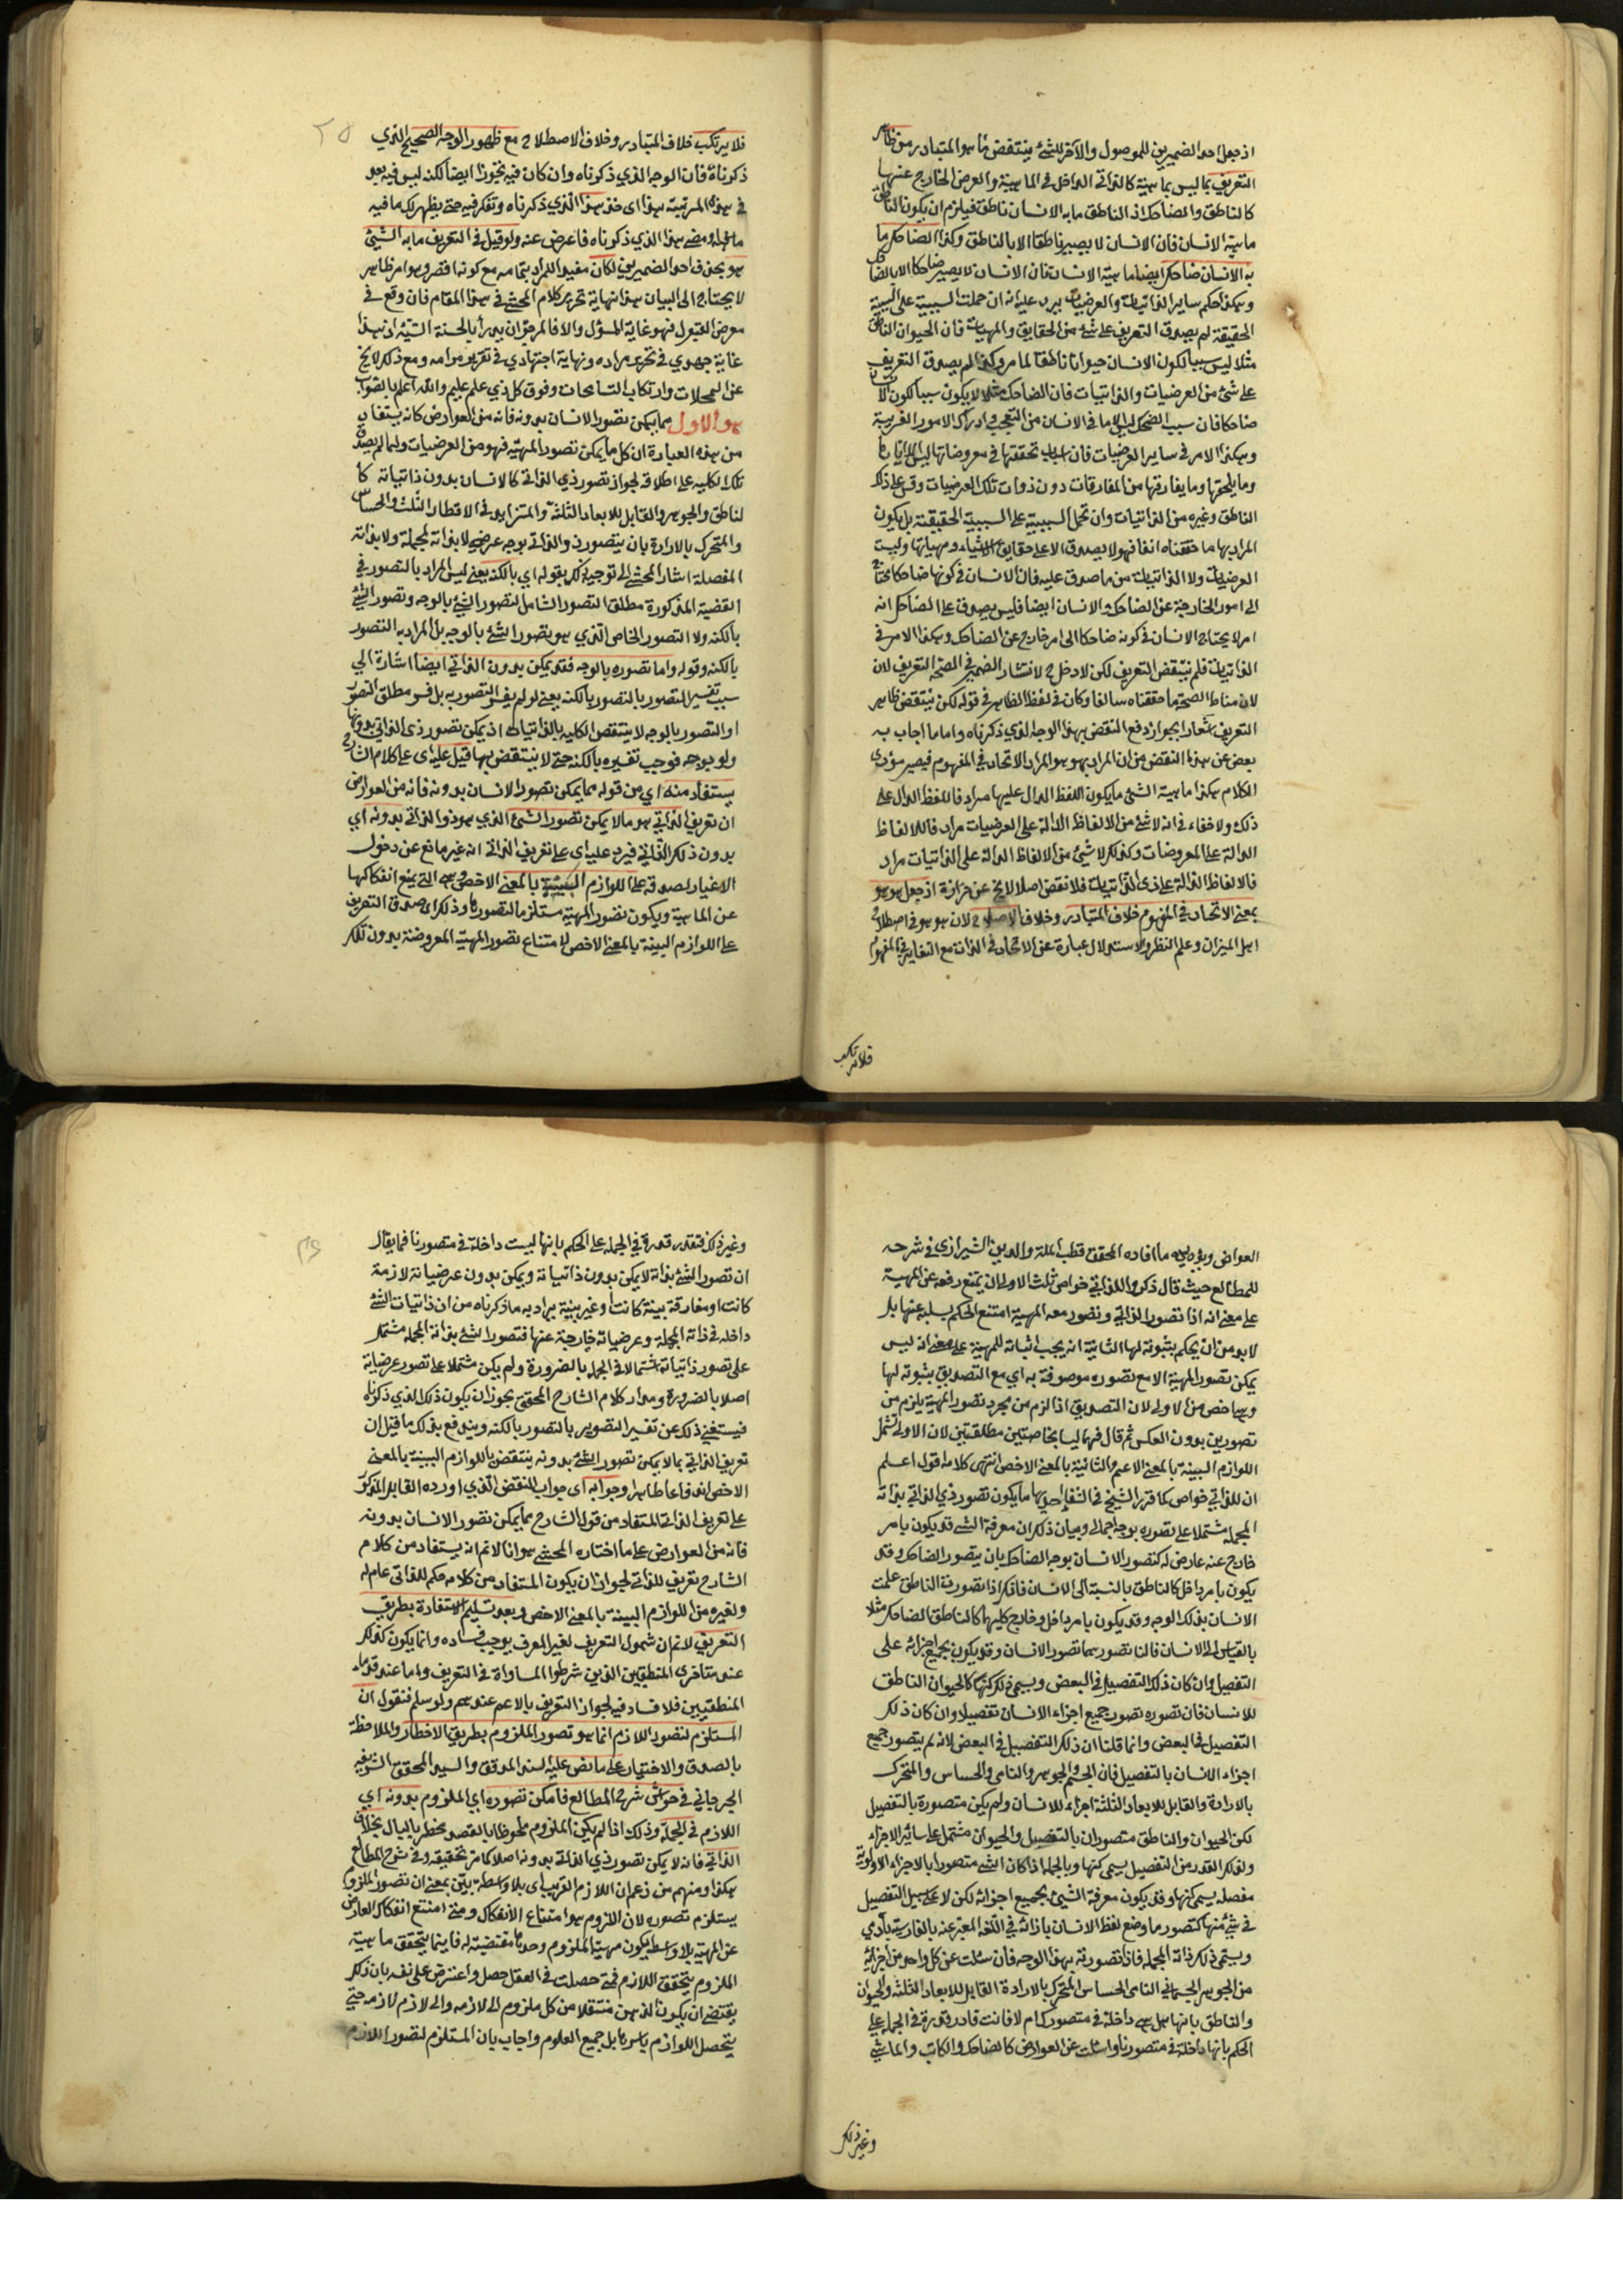 اذ جعل احد الضميرين للموصول والآخر للشئ ينتقض ما هو المتبادر من ظاهر
التعريف بما ليس بماهية كالذاتى الداخل فى الماهية والعرض الخارج عنها
كالناطق والضاحك اذ الناطق ما به الانسان ناطق فيلزم ان يكون الناطق
ماهية الانسان فان الانسان لا يصير ناطقا الا بالناطق وكذا الضاحك ما
به الانسان ضاحك ايضا ماهية الانسان فان الانسان لا يصير ضاحكا الا بالضاحك
وهكذا حكم ساير الذاتيات والعرضيات يرد عليه انه ان حملت السببية على السببية
الحقيقة لم يصدق التعريف على شئ من الحقايق والمهيات فان الحيوان الناطق
مثلا ليس سببا لكون الانسان حيوانا ناطقا لما مر وكذا لم يصدق التعريف
على شئ من العرضيات والذاتيات فان الضاحك مثلا لا يكون سببا لكون الانسان
ضاحكا فان سبب الضحك ليس الا ما فى الانسان من التعجب وادراك الامور الغريبة
وهكذا الامر فى ساير العرضيات فان اسباب تحققها فى معروضاتها ليس الا
وما يلحقها وما يفارقها من المفارقات دون ذوات تلك العرضيات وقس على ذلك
الناطق وغيره من الذاتيات وان تحمل السببية على السببية الحقيقية بل يكون
المراد بها ما حققناه انفا فهو لا يصدق الا على حقايق الاشياء ومهياتها وليست
العرضيات ولا الذاتيات من ما صدق عليه فان الانسان فى كونها ضاحكا محتاج
الى امور الخارجة عن الضاحك والانسان ايضا فليس يصدق على الضاحك انه
امر لا يحتاج الانسان فى كونه ضاحكا الى امر خارج عن الضاحك وهكذا الامر فى
الذاتيات فلم ينتقض التعريف لكن لا دخل ح لانتشار الضمير فى الصحة التعريف لان
لان مناط الصحة ما حققناه سالفا وكان فى لفظ الظاهر فى قوله لكن ينتقض ظاهر
التعريف اشعارا بجواز دفع النقض بهذا الوجه الذي ذكرناه واما ما اجاب به
بعض عن هذه النقض من ان المراد بهو هو المراد الاتحاد فى المفهوم فيصير مؤدى
الكلام هكذا ماهية الشئ ما يكون اللفظ الدال عليها مرادفا للفظ الدال على
ذلك ولا خفاء فى انه لا شئ من الالفاظ الدالة على العرضيات مرادفا للالفاظ
الدالة على المعروضات وكذلك لا شئ من الالفاظ الدالة على الذاتيات مراد
فا للالفاظ الدالة على ذى الذاتيات فلا نقض اصلا لا يخ عن حزازة اذ جعل هو هو
بمعنى الاتحاد فى المفهوم خلاف المتبادر وخلاف الاصطلاح لان هو هو فى اصطلاح
اهل الميزان وعلم النظر والاستدلال عبارة عن الاتحاد فى الذات مع التغاير فى المفهوم
فلا يرتكب
فلا يرتكب خلاف المتبادر وخلاف الاصطلاح مع ظهور الوجه الصحيح الذي
ذكرناه فان الوجه الذي ذكرناه وان كان فيه تجوزا ايضا لكنه ليس فيه بعد
فى هذه المرتبة هذا اى خذ هذا الذي ذكرناه وتفكر فيه حتى يظهر لك ما فيه
ما هذا الذي ذكرناه فاعرض عنه ولو قيل فى التعريف ما به الشئ
هو بحذف احد الضميرين لكان مفيدا للمراد بتمامه مع كونه اقصر وهو امر ظاهر
لا يحتاج الى البيان هذا نهاية تحرير كلام المحشى فى هذا المقام فان وقع فى
معرض القبول فهو غاية المسؤل والا فالمرجو ان يدرأ بالحسنة السيئة اذ هذا
غاية جهدي فى تحرير مراده ونهاية اجتهادي فى تقرير مرامه ومع ذلك لا يخ
عن التمحلات وارتكاب التسامحات وفوق كل ذي علم عليم والله اعلم بالصواب
هو الاول مما يمكن تصور الانسان بدونه فانه من العوارض كانه يستفاد
من هذه العبارة ان كل ما يمكن تصور المهية فهو من العرضيات ولما لم يصدق
تلك الكلية على اطلاقه لجواز تصور ذي الذاتى كالانسان بدون ذاتياته كا
لناطق والجوهر والقابل للابعاد الثلثة والمتزايد فى الاقطار الثلث والحساس
والمتحرك بالارادة بان يتصور ذو الذاتى بوجه عرضى لا بذاته المجملة ولا بذاته
المفصلة اشار المحشى الى توجيه ذلك بقوله اي بالكنه يعنى ليس المراد بالتصور فى
القضية المذكورة مطلق التصور الشامل لتصور الشئ بالوجه وتصور الشئ
بالكنه ولا التصور الخاص الذي هو تصور الشئ بالوجه بل المراد به التصور
بالكنه وقوله واما تصوره بالوجه فقد يمكن بدون الذاتي ايضا اشارة الى
سبب تفسير التصور بالتصور بالكنه يعنى لو لم يفسر التصور به بل فسر مطلق التصور
او التصور بالوجه لا ينتقض الكلية بالذاتيات اذ يمكن تصور ذى الذاتى بدونها
ولو بوجه فوجب تفسيره بالكنه حتى لا ينتقض بها قيل عليه اى على كلام الشارح
يستفاد منه اي من قوله مما يمكن تصور الانسان بدونه فانه من العوارض
ان تعريف الذاتي هو ما لا يمكن تصور الشئ الذي هو ذو الذاتى بدونه اي
بدون ذلك الذاتي فيرد عليه اى على تعريف الذاتى انه غير مانع عن دخول
الاغيار لصدقه على اللوازم البينة بالمعنى الاخص وهى التى يمتنع انفكاكها
عن الماهية ويكون تصور المهية مستلزما لتصورها وذلك اى صدق التعريف
على اللوازم البينة بالمعنى الاخص لامتناع تصور المهية المعروضة بدون تلك
العوارض ويؤيده ما افاده المحقق قطب الملة والدين الشيرازى فى شرحه
للمطالع حيث قال ذكروا للذاتي خواص ثلث الاولى ان يمتنع رفعه عن المهية
على معنى انه اذا تصور الذاتى وتصور معه المهية امتنع الحكم بسلبه عنها بل
لا بد من ان يحكم بثبوته لها الثانية انه يجب اثباته للمهية على معنى انه ليس
يمكن تصور المهية الا مع تصوره موصوفة به اي مع التصديق بثبوته لها
وهى اخص من الاولى لان التصديق اذا لزم من مجرد تصور المهية يلزم من
تصورين بدون العكس ثم قال فهما ليسا بخاصتين مطلقتين لان الاولى تشمل
اللوازم البينة بالمعنى الاعم والثانية بالمعنى الاخص انتهى كلامه اقول اعلم
ان للذاتي خواص كما قرر الشيخ فى الشفا احديها ما يكون تصور ذي الذاتي بذاته
المجملة مشتملا على تصوره بوجه اجمالى وبيان ذلك ان معرفة الشئ قد يكون بامر
خارج عنه عارض له كتصور الانسان بوجه الضاحك بان يتصور الضاحك وقد
يكون بامر داخل كالناطق بالنسبة الى الانسان فانك اذا تصورت الناطق علمت
الانسان بذلك الوجه وقد يكون بامر داخل وخارج كليهما كالناطق الضاحك مثلا
بالقياس الى الانسان فالنا تصورهما تصور الانسان وقد يكون بجميع اجزائه على
التفصيل وان كان ذلك التفصيل فى البعض ويسمى ذلك كنها كالحيوان الناطق
للانسان فان تصوره تصور جميع اجزاء الانسان تفصيلا وان كان ذلك
التفصيل فى البعض وانما قلنا ان ذلك التفصيل فى البعض لانه لم يتصور جميع
اجزاء الانسان بالتفصيل فان الجسم والجوهر والنامى والحساس والمتحرك
بالارادة والقابل للابعاد الثلثة اجزاء للانسان ولم يكن متصورة بالتفصيل
لكن الحيوان والناطق متصوران بالتفصيل والحيوان مشتمل على سائر الاجزاء
ولذلك القدر من التفصيل يسمى كنها وبالجملة اذا كان الشئ متصورا بالاجزاء الاولوية
مفصله يسمى كنها وقد يكون معرفة الشئ بجميع اجزائه لكن لا على سبيل التفصيل
فى شئ منها كتصور ما وضع لفظ الانسان بازائه فى اللغة المعبر عنه بالفارسية بآدمى
ويسمى ذلك ذاته المجملة فاذا تصورته بهذا الوجه فان سئلت عن كل واحد من اجزائه
من الجوهر الجسمانى النامى الحساس المتحرك بالارادة القابل للابعاد الثلثة والحيوان
والناطق بانها هل هى داخلة فى متصورك ام لا فانت قادر قدرة فى الجملة على
الحكم بانها داخلة فى متصورنا واذا سئلت عن العوارض كالضاحك والكاتب والماشى
وغير ذلك
وغير ذلك فتقدر قدرة فى الجملة على الحكم بانها ليست داخلة فى متصورنا فما يقال
ان تصور الشئ بذاته لا يمكن بدون ذاتياته ويمكن بدون عرضياته لازمة
كانت او مفارقة بينة كانت او غير بينة يراد به ما ذكرناه من ان ذاتيات الشئ
داخلة فى ذاته المجملة وعرضياته خارجة عنها فتصور الشئ بذاته المجملة مشتمل
على تصور ذاتياته اشتمالا فى الجملة بالضرورة ولم يكن مشتملا على تصور عرضياته
اصلا بالضرورة ومراد كلام الشارح المحقق يجوز ان يكون ذلك الذي ذكرناه
فيستغنى ذلك عن تفسير التصور بالتصور بالكنه ويندفع بذلك ما قيل ان
تعريف الذاتي بما لا يمكن تصور الشئ بدونه ينتقض باللوازم البينة بالمعنى
الاخص اندفاعا ظاهرا وجوابه اى جواب النقض الذي اورده القايل المذكور
على تعريف الذاتى المستفاد من قول الشارح مما يمكن تصور الانسان بدونه
فانه من العوارض على ما اختاره المحشى هو انا لا نم انه يستفاد من كلام
الشارح تعريف للذاتى لجواز ان يكون المستفاد من كلامه حكم للذاتى عام له
ولغيره من اللوازم البينة بالمعنى الاخص وبعد تسليم الاستفادة بطريق
التعريف لا نم ان شمول التعريف لغير المعرف يوجب فساده وانما يكون كذلك
عند متأخرى المنطقيين الذين شرطوا المساواة فى التعريف واما عند قدماء
المنطقيين فلا فساد فيه لجواز التعريف بالاعم عندهم ولو سلم فنقول ان
المستلزم لتصور اللازم انما هو تصور الملزوم بطريق الاخطار والملاحظة
بالصدق والاختيار على ما نص عليه السند المدقق والسيد المحقق الشريف
الجرجاني فى حواش شرح المطالع فامكن تصوره اي الملزوم بدونه اي
اللازم فى الجملة وذلك اذا لم يكن الملزوم ملحوظا بالقصد مخطرا بالبال بخلاف
الذاتي فانه لا يمكن تصور ذي الذاتى بدونه اصلا كما مر تحقيقه وفى شرح المطالع
هكذا ومنهم من زعم ان اللازم القريب اى بلا واسطة بين بمعنى ان تصور الملزوم
يستلزم تصوره لان اللزوم هو امتناع الانفكاك ومتى امتنع انفكاك العارض
عن المهية بلا واسطة يكون مهية الملزوم وحدها مقتضية له فاينما يتحقق ماهية
الملزوم يتحقق اللازم فمتى حصلت فى العقل حصل واعترض على نفسه بان ذلك
يقتضى ان يكون الذهن منتقلا من كل ملزوم الى لازمه والى لازم لازمه حتى
يتحصل اللوازم باسرها بل جميع العلوم واجاب بان المستلزم لتصور اللازم